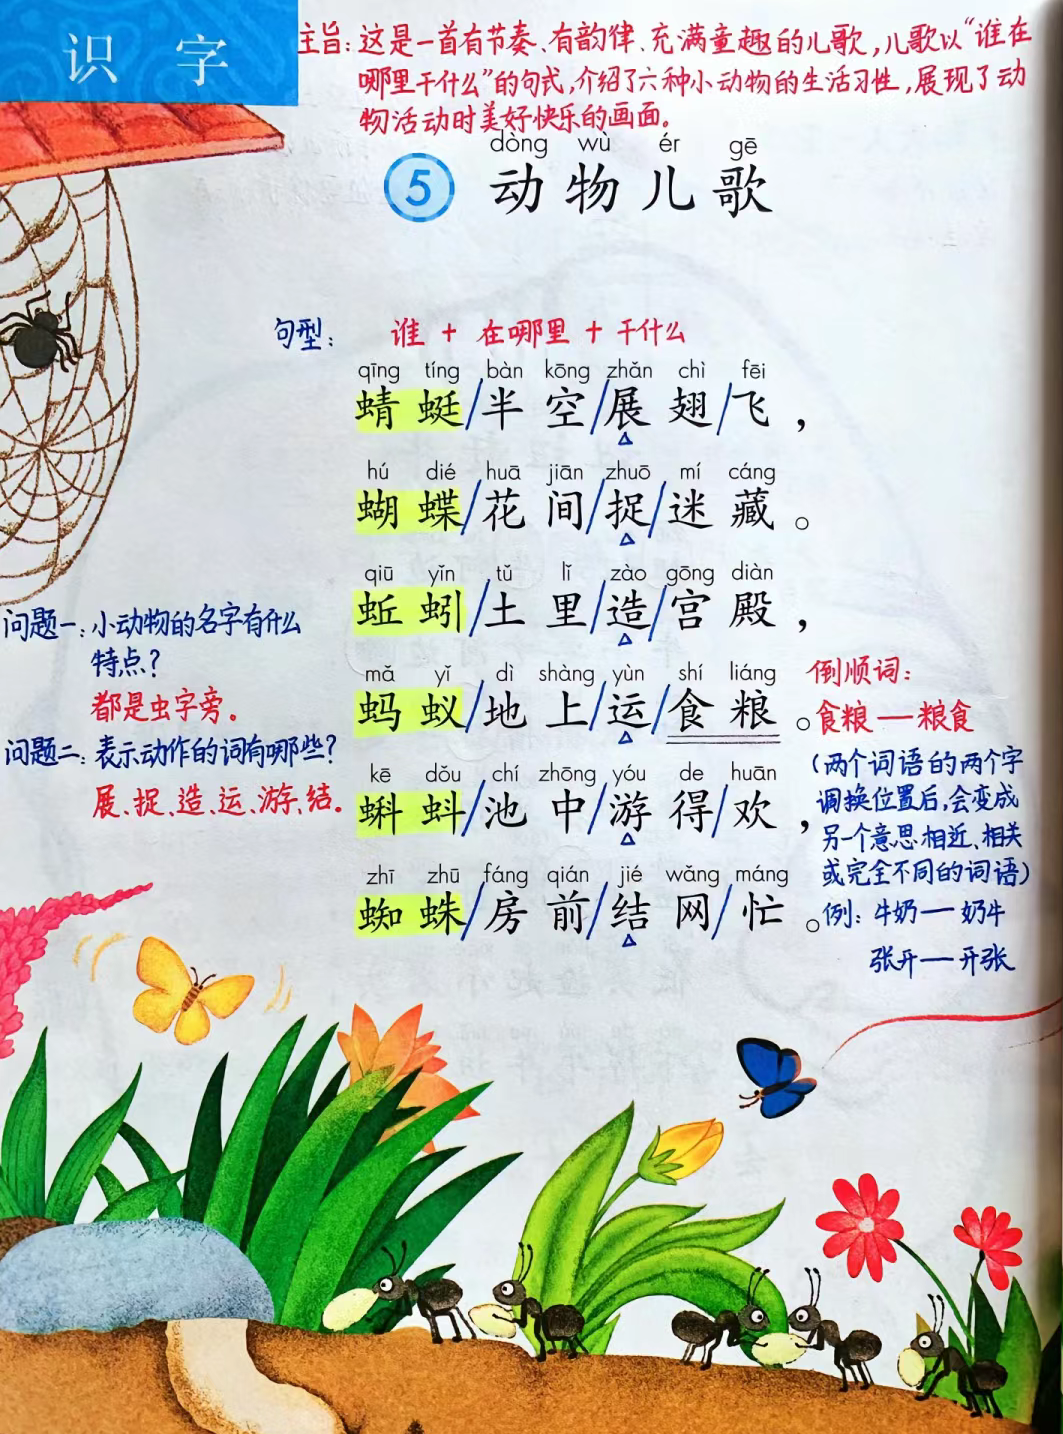 识字
主旨：这是一首有节奏、有韵律、充满童趣的儿歌，儿歌以“谁在
哪里干什么”的句式，介绍了六种小动物的生活习性，展现了动
物活动时美好快乐的画面。
dòng wù ér gē
5 动物儿歌
句型： 谁 + 在哪里 + 干什么
qīng tíng bàn kōng zhǎn chì fēi
蜻蜓/半空/展翅/飞，
hú dié huā jiān zhuō mí cáng
蝴蝶/花间/捉/迷藏。
qiū yǐn tǔ lǐ zào gōng diàn
蚯蚓/土里/造/宫殿，
mǎ yǐ dì shàng yùn shí liáng
蚂蚁/地上/运/食粮。
kē dǒu chí zhōng yóu de huān
蝌蚪/池中/游得/欢，
zhī zhū fáng qián jié wǎng máng
蜘蛛/房前/结网/忙。
问题一：小动物的名字有什么
特点？
都是虫字旁。
问题二：表示动作的词有哪些？
展、捉、造、运、游、结。
倒顺词：
食粮——粮食
（两个词语的两个字
调换位置后，会变成
另一个意思相近、相关
或完全不同的词语）
例：牛奶——奶牛
张开——开张